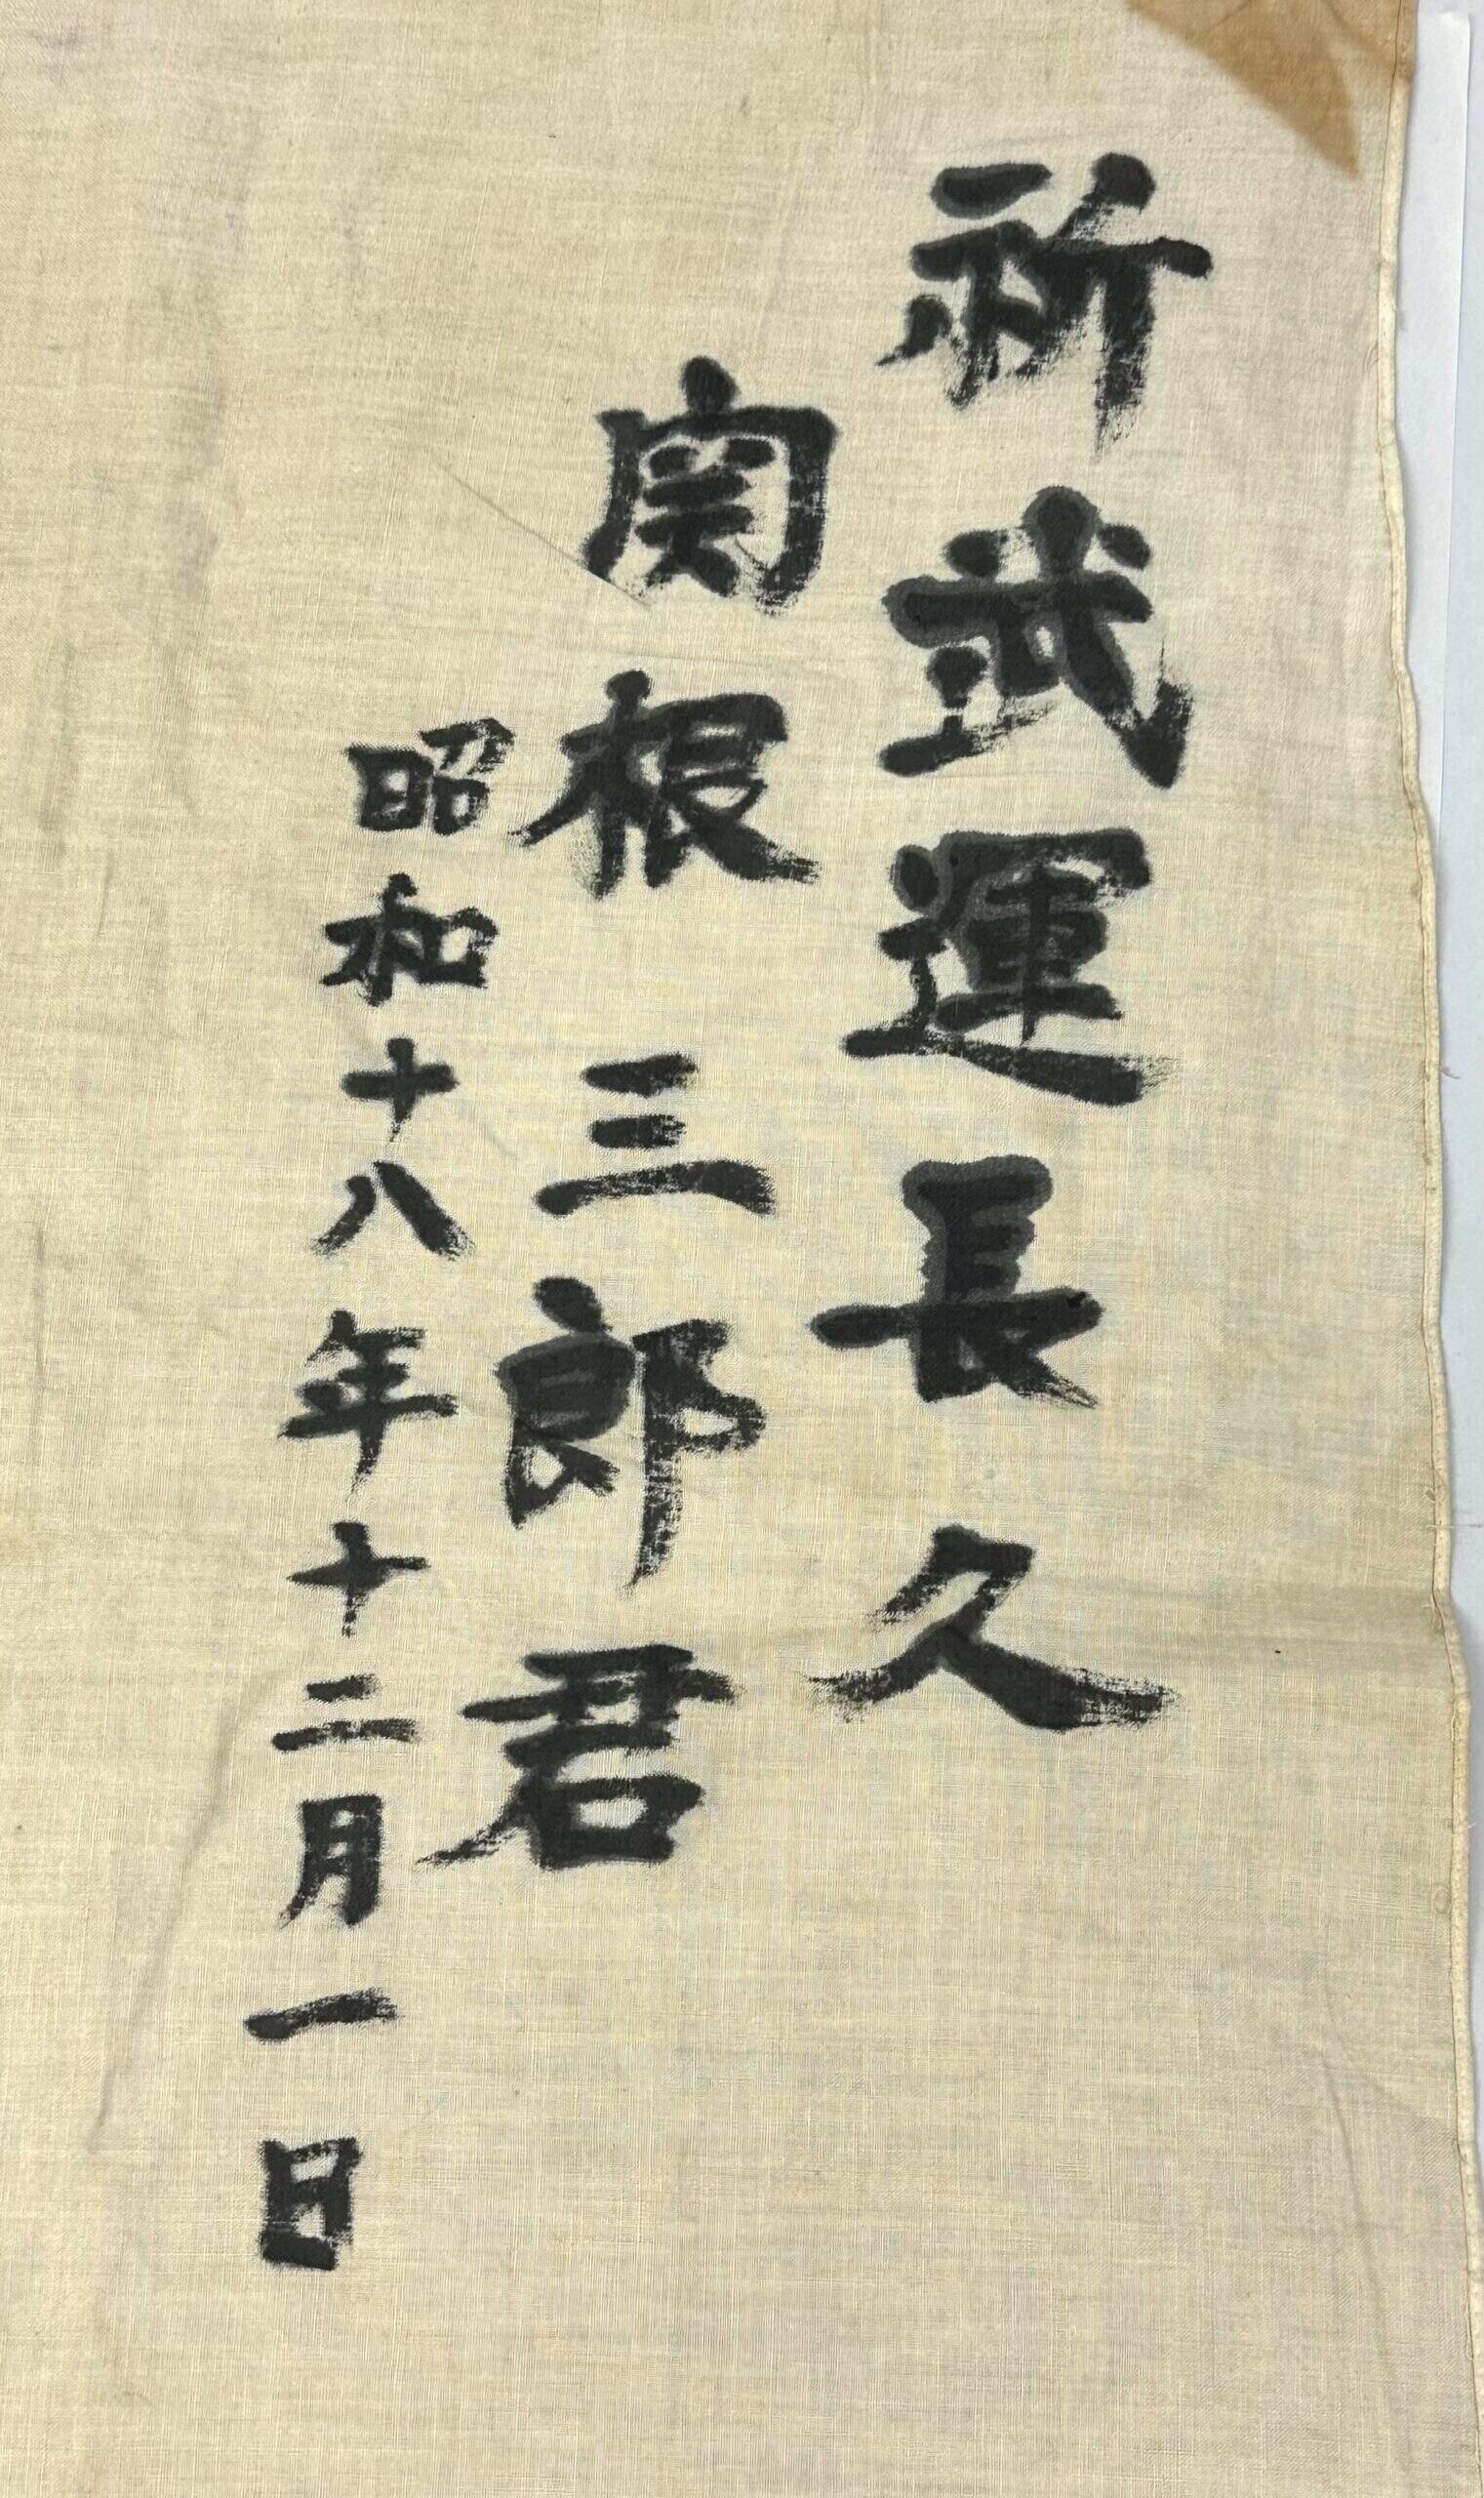 祈武運長久
関根三郎君
昭和十八年十二月一日